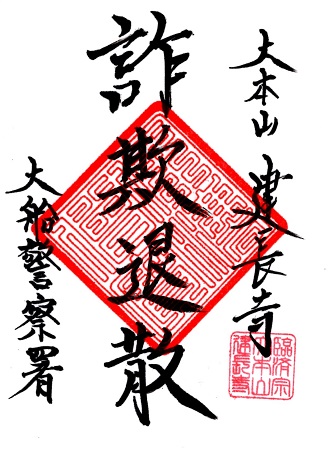 大本山 建長寺
詐欺退散
大船警察署
臨済宗
大本山
建長寺